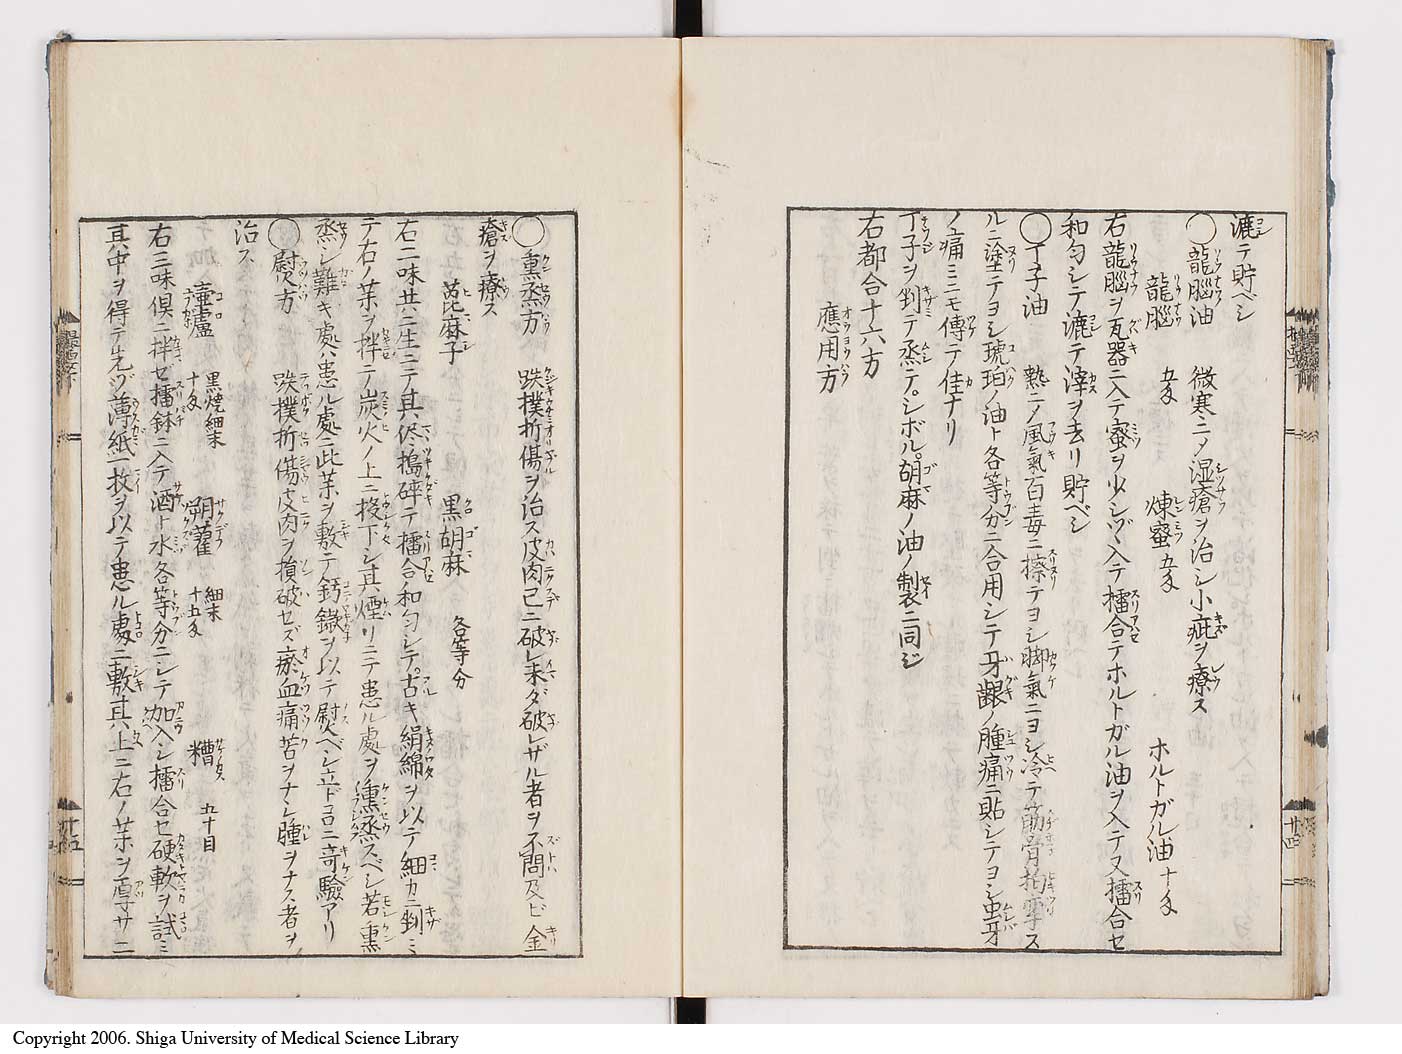 漉テ貯ベシ
○龍腦油 微寒ニノ湿瘡ヲ治シ小疵ヲ療ス
龍腦 五匁 煉蜜 五匁 ホルトガル油 十匁
右龍腦ヲ瓦器ニ入テ蜜ヲ少シヅヽ入テ擂合テホルトガル油ヲ入テ又擂合セ
和匀シテ漉テ滓ヲ去リ貯ベシ
○丁子油 熱ニノ風氣百毒ニ擦テヨシ脚氣ニヨシ冷テ筋骨拘攣ス
ルニ塗テヨシ琥珀ノ油ト各等分ニ合用シテ牙齦ノ腫痛ニ貼シテヨシ虫牙
ノ痛ミニモ傳テ佳ナリ
丁子ヲ剉テ蒸テシボル。胡麻ノ油ノ製ニ同ジ
右都合十六方
應用方
○熏烝方 跌撲折傷ヲ治ス皮肉已ニ破レ未ダ破レザル者ヲ不問及ビ金
瘡ヲ療ス
萞麻子 黒胡麻 各等分
右二味共ニ生ニテ其侭搗碎テ擂合和匀シテ。古キ絹綿ヲ以テ細カニ剉ミ
テ右ノ菜ヲ拌テ炭火ノ上ニ投下シ其煙リニテ患ル處ヲ熏烝スベシ若熏
烝シ難キ處ハ患ル處ニ此菜ヲ敷テ鈣鎄ヲ以テ熨ベシ立ドコロニ竒驗アリ
○熨方 跌撲折傷皮肉ヲ損破セズ瘀血痛苦ヲナシ腫ヲナス者ヲ
治ス
壷盧 黒燒細末 十匁 蒴藋 細末 十五匁 糟 五十目
右三味倶ニ拌セ擂鉢ニ入テ酒ト水各等分ニシテ加入シ擂合セ硬軟ヲ試ミ
其中ヲ得テ先ヅ薄紙一枚ヲ以テ患ル處ニ敷其上ニ右ノ菜ヲ厚サ二
十五
廿四
Copyright 2006. Shiga University of Medical Science Library